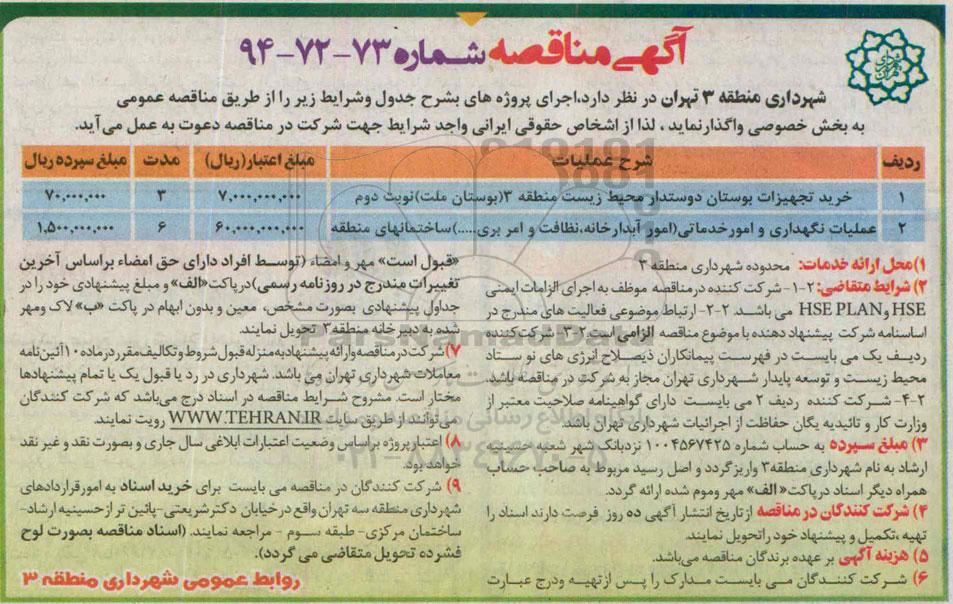 آگهی مناقصه شماره ۷۳-۷۲-۹۴
شهرداری منطقه ۳ تهران در نظر دارد،اجرای پروژه های بشرح جدول وشرایط زیر را از طریق مناقصه عمومی
به بخش خصوصی واگذارنماید ، لذا از اشخاص حقوقی ایرانی واجد شرایط جهت شرکت در مناقصه دعوت به عمل می‌آید.
ردیف شرح عملیات مبلغ اعتبار(ریال) مدت مبلغ سپرده ریال
۱ خرید تجهیزات بوستان دوستدار محیط زیست منطقه ۳(بوستان ملت)نوبت دوم ۷,۰۰۰,۰۰۰,۰۰۰ ۳ ۷۰,۰۰۰,۰۰۰
۲ عملیات نگهداری و امورخدماتی(امور آبدارخانه،نظافت و امر بری.....)ساختمانهای منطقه ۶۰,۰۰۰,۰۰۰,۰۰۰ ۶ ۱,۵۰۰,۰۰۰,۰۰۰
۱)محل ارائه خدمات: محدوده شهرداری منطقه ۳
۲) شرایط متقاضی: ۲-۱- شرکت کننده درمناقصه موظف به اجرای الزامات ایمنی
HSE و HSE PLAN می باشد. ۲-۲- ارتباط موضوعی فعالیت های مندرج در
اساسنامه شرکت پیشنهاد دهنده با موضوع مناقصه الزامی است.۲-۳- شرکت‌کننده
ردیف یک می بایست در فهرست پیمانکاران ذیصلاح انرژی های نو ستاد
محیط زیست و توسعه پایدار شهرداری تهران مجاز به شرکت در مناقصه باشد.
۲-۴- شرکت کننده ردیف ۲ می بایست دارای گواهینامه صلاحیت معتبر از
وزارت کار و تائیدیه یگان حفاظت از اجرائیات شهرداری تهران باشد.
۳) مبلغ سپرده به حساب شماره ۱۰۰۴۵۶۷۴۲۵ نزدبانک شهر شعبه حسینیه
ارشاد به نام شهرداری منطقه۳ واریز گردد و اصل رسید مربوط به صاحب حساب
همراه دیگر اسناد درپاکت« الف» مهر وموم شده ارائه گردد.
۴) شرکت کنندگان در مناقصه ازتاریخ انتشار آگهی ده روز فرصت دارند اسناد را
تهیه ،تکمیل و پیشنهاد خود راتحویل نمایند.
۵) هزینه آگهی بر عهده برندگان مناقصه می‌باشد.
۶) شرکت کنندگان می بایست مدارک را پس ازتهیه ودرج عبارت
«قبول است» مهر و امضاء (توسط افراد دارای حق امضاء براساس آخرین
تغییرات مندرج در روزنامه رسمی)درپاکت«الف» و مبلغ پیشنهادی خود را در
جداول پیشنهادی بصورت مشخص، معین و بدون ابهام در پاکت «ب» لاک ومهر
شده به دبیرخانه منطقه۳ تحویل نمایند.
۷) شرکت در مناقصه وارائه پیشنهاد به منزله قبول شروط و تکالیف مقرر در ماده ۱۰ آئین نامه
معاملات شهرداری تهران می باشد. شهرداری در رد یا قبول یک یا تمام پیشنهادها
مختار است. مشروح شرایط مناقصه در اسناد درج می‌باشد که شرکت کنندگان
می توانند از طریق سایت WWW.TEHRAN.IR رویت نمایند.
۸) اعتبار پروژه براساس وضعیت اعتبارات ابلاغی سال جاری و بصورت نقد و غیر نقد
خواهد بود.
۹) شرکت کنندگان در مناقصه می بایست برای خرید اسناد به امور قراردادهای
شهرداری منطقه سه تهران واقع در خیابان دکتر شریعتی-پائین تر از حسینیه ارشاد-
ساختمان مرکزی- طبقه سوم - مراجعه نمایند. (اسناد مناقصه بصورت لوح
فشرده تحویل متقاضی می گردد).
روابط عمومی شهرداری منطقه ۳
ParsNamadData